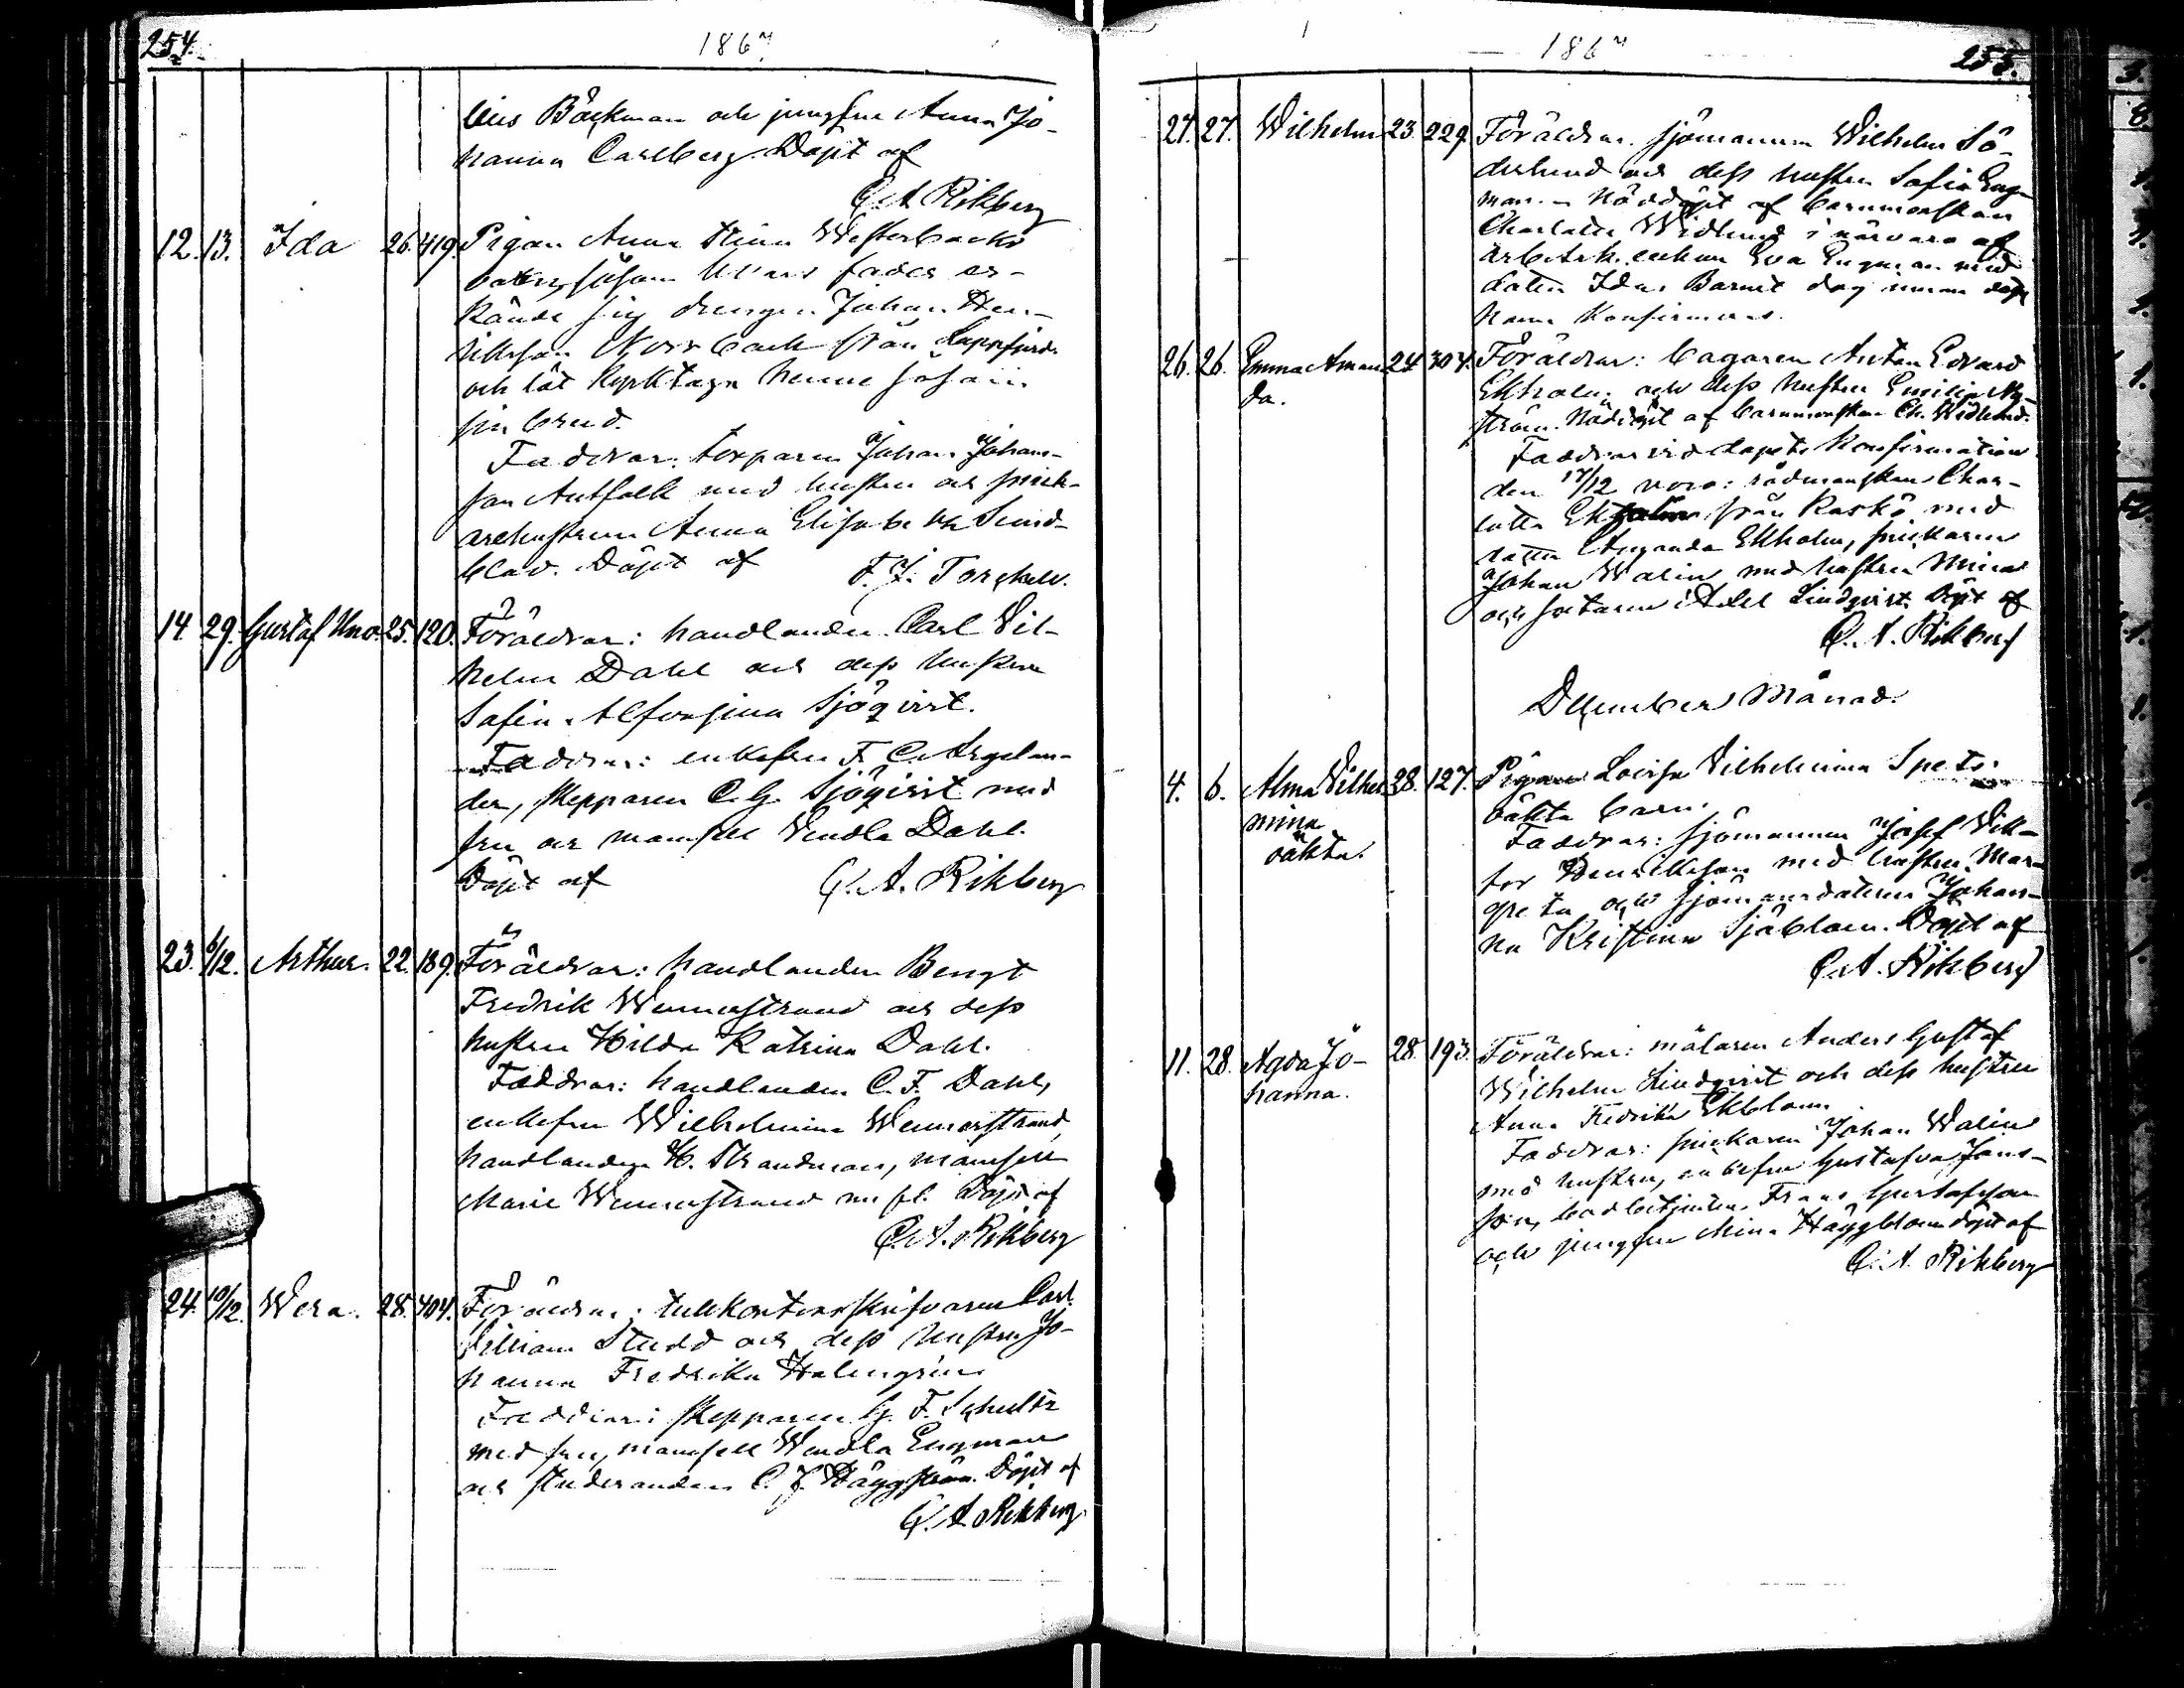 254.
1867.
lius Bäckman och jungfru Anna Jo-
hanna Carlberg. Döpt af
C. A. Rikberg
12. 13. Ida 26. 419. Pigan Anna Stina Westerbacks
barn, såsom hvars fader er-
kände sig drengen Johan Hen-
riksson Norrback från Lappfjerd
och lät kyrktaga henne såsom
sin brud.
Faddrar: torparen Johan Johans-
son Antfolk med hustru och snick-
arehustrun Anna Elisabeth Sund-
blad. Döpt af F. J. Torckell.
14 29. Gustaf Uno. 25. 120. Föräldrar: handlanden Carl Wil-
helm Dahl och dess hustru
Sofia Alfonsina Sjöqvist.
Faddrar: enkefru F. C. Argelan-
der, skepparen C. G. Sjöqvist med
fru och mamsell Wendla Dahl.
Döpt af C. A. Rikberg
23. 6/12. Arthur. 22. 189. Föräldrar: handlanden Bengt
Fredrik Wennerstrand och dess
hustru Hilda Katrina Dahl.
Faddrar: handlanden C. F. Dahl,
enkefru Wilhelmina Wennerstrand,
handlanden H. Strandman, mamsell
Marie Wennerstrand m. fl. Döpt af
C. A. Rikberg
24. 10/12. Wera. 28. 404. Föräldrar: tullkontorsskrifvaren Carl
William Studd och dess hustru Jo-
hanna Fredrika Holmgren
Faddrar: skepparen G. F. Schultz
med fru, mamsell Wendla Engman
och studeranden C. J. Häggström. Döpt af
C. A. Rikberg.
1867
255.
27. 27. Wilhelm 23 229. Föräldrar: sjömannen Wilhelm Sö-
derlund och dess hustru Sofia Eng-
man. Nöddöpt af barnmorskan
Charlotte Widlund i närvaro af
arbetsk. enkan Eva Engman med
dotter Ida. Barnet dog innan döp
hann konfirmeras.
26. 26. Emma Aman- 24 304. Föräldrar: bagaren Anton Edvard
da. Ekholm och dess hustru Emilia Ny-
ström. Nöddöpt af barnmorskan Ch. Widlund.
Faddrar vid dopets konfirmation
den 17/12 voro: rådmanskan Char-
lotta från Kaskö med
dotter Amanda Ekholm, snickaren
Johan Walin med hustru Mina
och Lindqvist. Döpt af
C. A. Rikberg
December Månad.
4. 6. Alma Wilhel- 28. 127. Pigan Lovisa Wilhelmina Spets
mina oäkta barn.
oäkta. Faddrar: sjömannen Josef Vik-
tor Henriksson med hustru Mar-
greta och sjömansdottern Johan-
na Kristina Sjöblom. Döpt af
C. A. Rikberg
11. 28. Agda Jo- 28. 193. Föräldrar: målaren Anders Gustaf
hanna. Wilhelm Lindqvist och dess hustru
Anna Fredrika Ekblom.
Faddrar: snickaren Johan Walin
med hustru, enkefru Gustafva Jans-
son, Frans Gustafsson
och jungfru Mina Häggblom. Döpt af
C. A. Rikberg